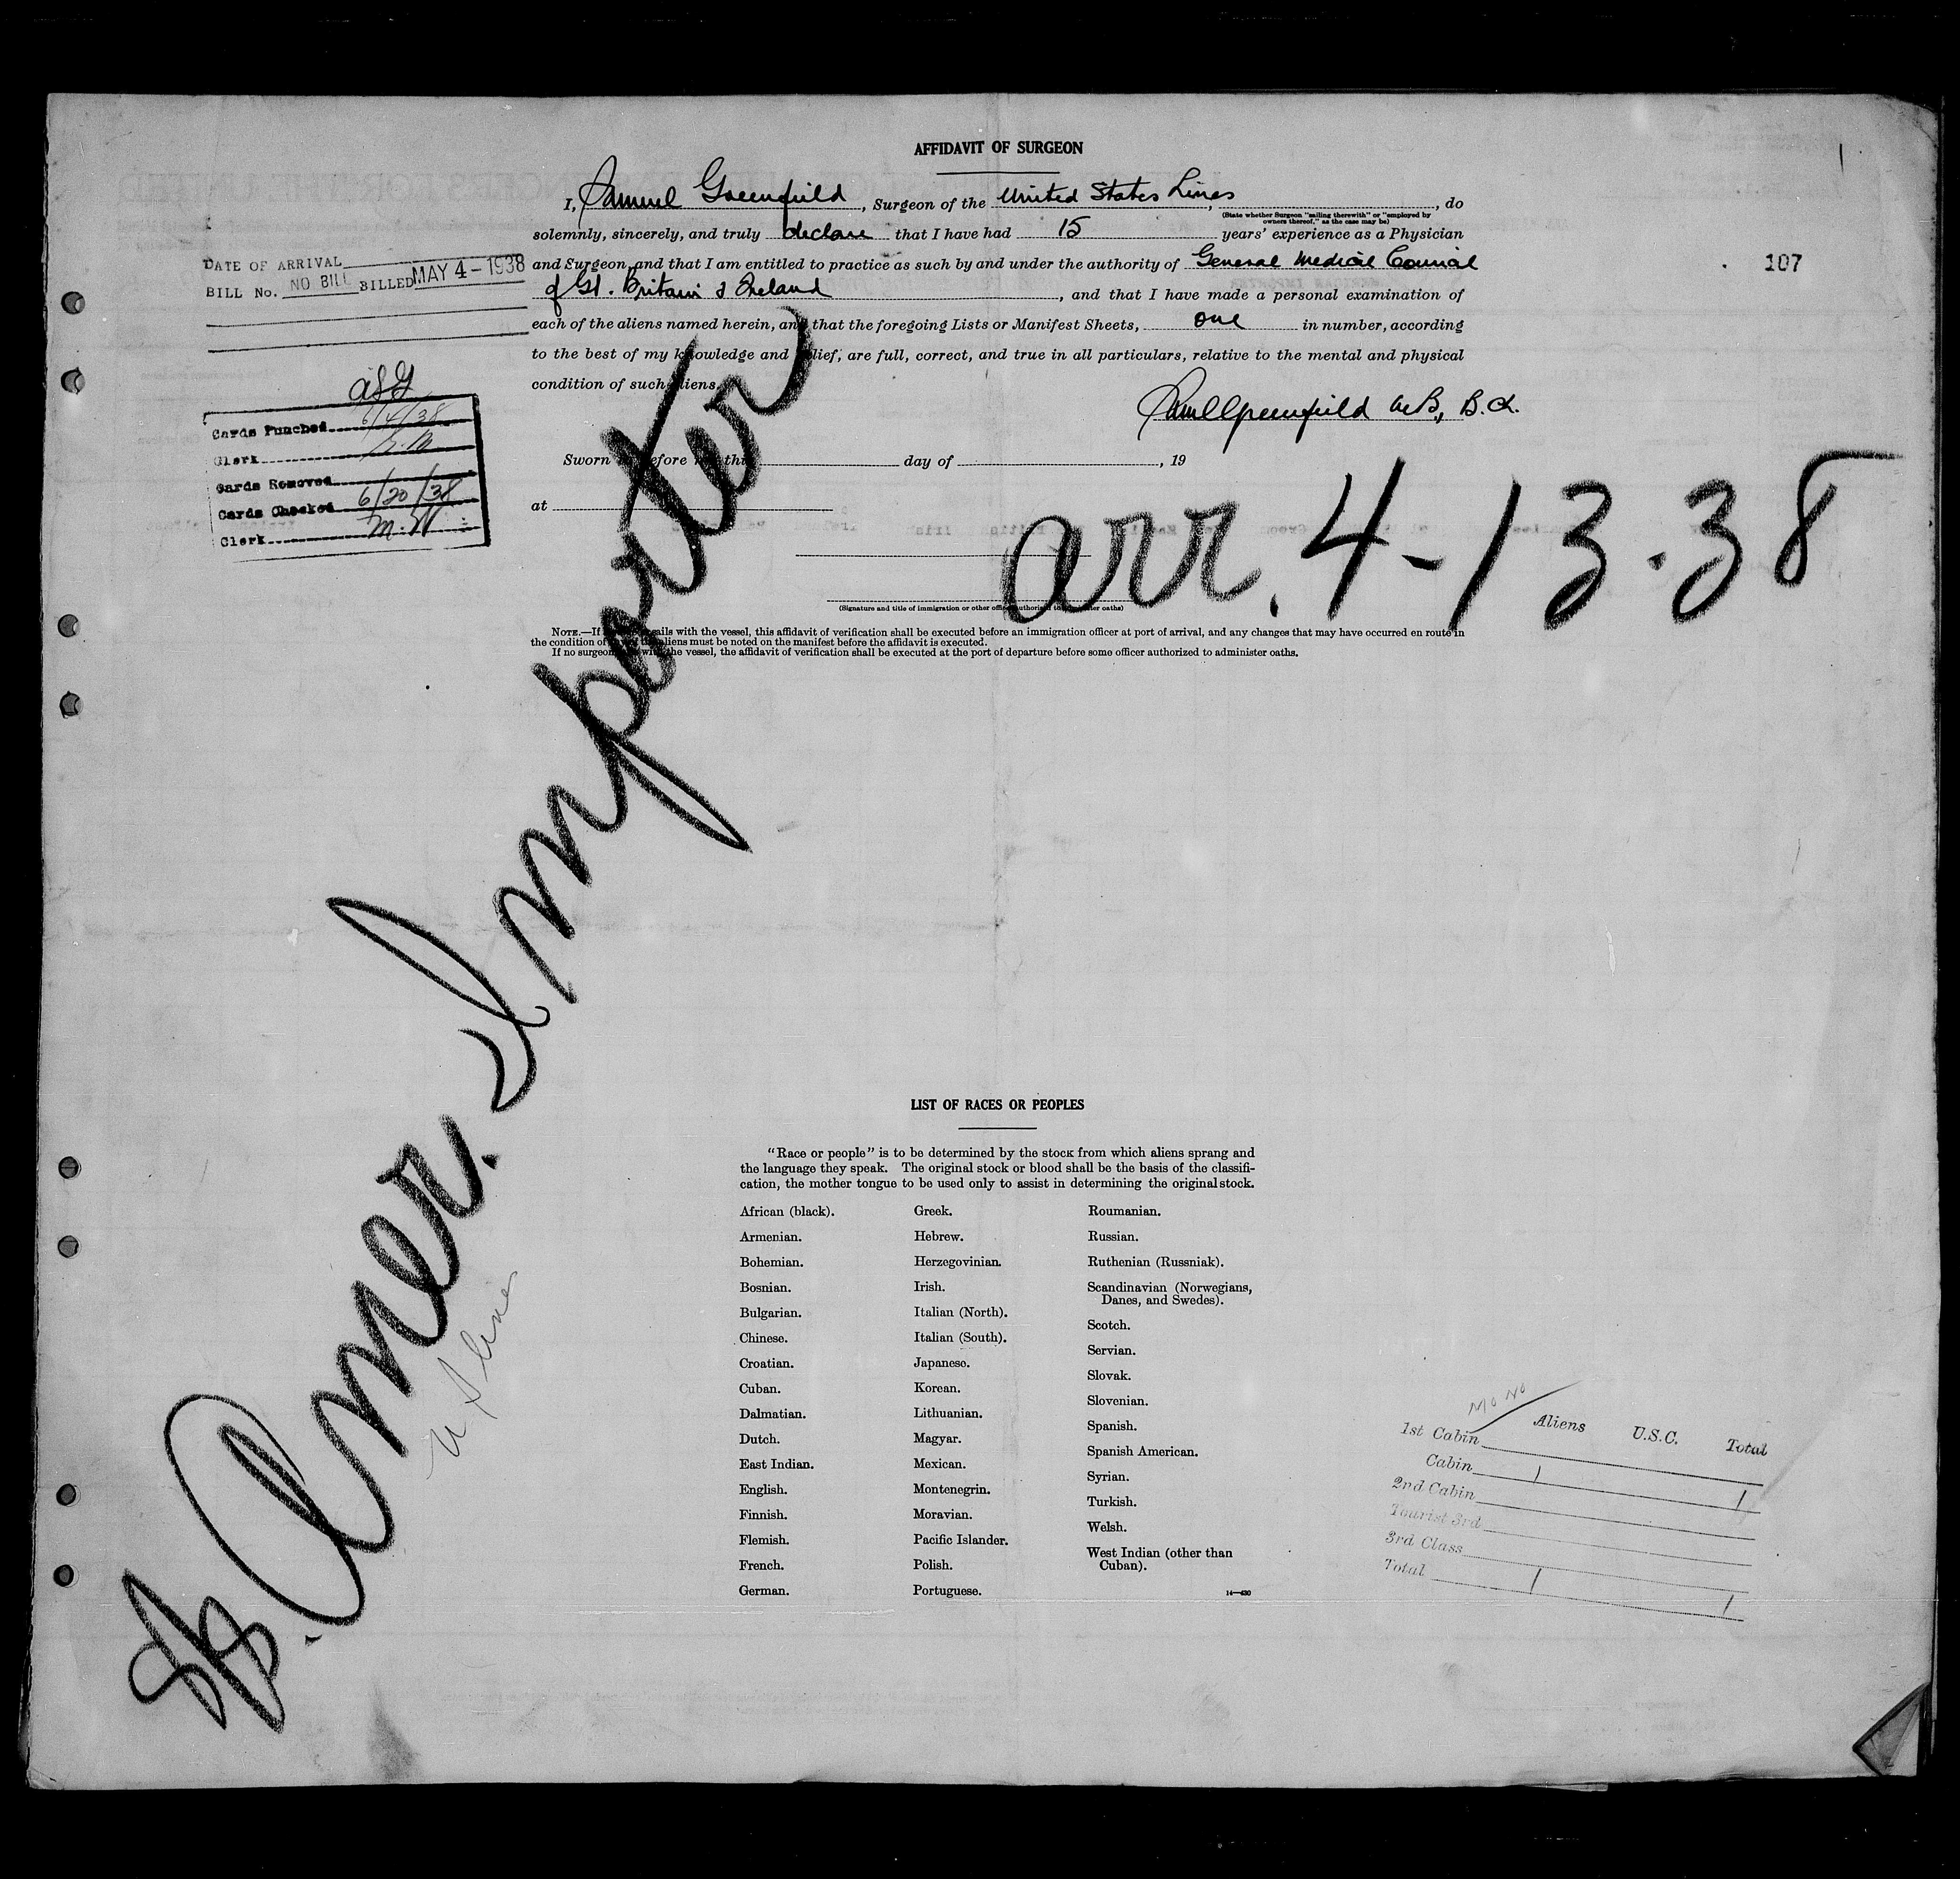 AFFIDAVIT OF SURGEON
I, Samuel Greenfield, Surgeon of the United States Lines, do
(State whether Surgeon "sailing therewith" or "employed by
owners thereof," as the case may be)
solemnly, sincerely, and truly declare that I have had 15 years' experience as a Physician
and Surgeon, and that I am entitled to practice as such by and under the authority of General Medical Council
of Gt. Britain & Ireland, and that I have made a personal examination of
each of the aliens named herein, and that the foregoing Lists or Manifest Sheets, one in number, according
to the best of my knowledge and belief, are full, correct, and true in all particulars, relative to the mental and physical
condition of such aliens.
Saml Greenfield M.B., B.Ch.
Sworn to before me this day of , 19
at
(Signature and title of immigration or other officer authorized to administer oaths)
NOTE.—If surgeon sails with the vessel, this affidavit of verification shall be executed before an immigration officer at port of arrival, and any changes that may have occurred en route in
the condition of any of the aliens must be noted on the manifest before the affidavit is executed.
If no surgeon sails with the vessel, the affidavit of verification shall be executed at the port of departure before some officer authorized to administer oaths.
DATE OF ARRIVAL
BILL No. NO BILL BILLED MAY 4-1938
107
Cards Punched 6/4/38
Clerk
Cards Removed
Cards Checked 6/20/38
Clerk M.W.
arr. 4-13-38
SS. Amer. Importer
U S Lines
LIST OF RACES OR PEOPLES
"Race or people" is to be determined by the stock from which aliens sprang and
the language they speak. The original stock or blood shall be the basis of the classifi-
cation, the mother tongue to be used only to assist in determining the original stock.
African (black).
Armenian.
Bohemian.
Bosnian.
Bulgarian.
Chinese.
Croatian.
Cuban.
Dalmatian.
Dutch.
East Indian.
English.
Finnish.
Flemish.
French.
German.
Greek.
Hebrew.
Herzegovinian.
Irish.
Italian (North).
Italian (South).
Japanese.
Korean.
Lithuanian.
Magyar.
Mexican.
Montenegrin.
Moravian.
Pacific Islander.
Polish.
Portuguese.
Roumanian.
Russian.
Ruthenian (Russniak).
Scandinavian (Norwegians,
Danes, and Swedes).
Scotch.
Servian.
Slovak.
Slovenian.
Spanish.
Spanish American.
Syrian.
Turkish.
Welsh.
West Indian (other than
Cuban).
14—430
Aliens U.S.C. Total
1st Cabin
Cabin 1 1
2nd Cabin
Tourist 3rd
3rd Class
Total 1 1